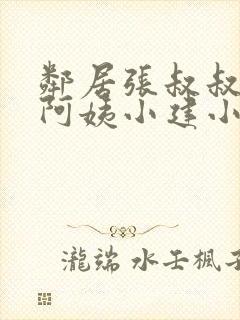 鄰居張叔叔
阿姨小建小
瀧端 水壬楓子